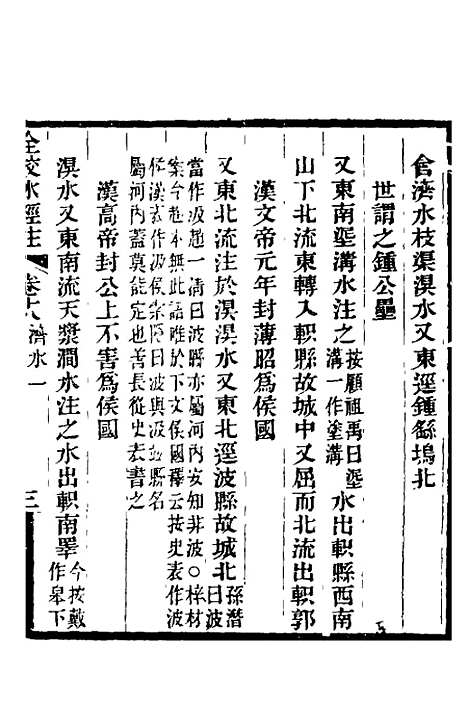 會濟水枝渠溴水又東逕鍾繇塢北
世謂之鍾公壘
又東南壟溝水注之按顧祖禹曰壟溝一作塗溝水出軹縣西南
山下北流東轉入軹縣故城中又屈而北流出軹郭
漢文帝元年封薄昭爲侯國
又東北流注於溴溴水又東北逕波縣故城北孫潛曰波
當作汲趙一清曰波縣亦屬河內安知非波○梓材
案今趙本無此語唯於下文侯國釋云按史表作波
侯漢表作汲索隱曰波與汲竝縣名
屬河內蓋莫能定也善長從史表書之
漢高帝封公上不害爲侯國
溴水又東南流天漿澗水注之水出軹南睪今按戴作皋下
全校水經注
卷七
濟水一
三